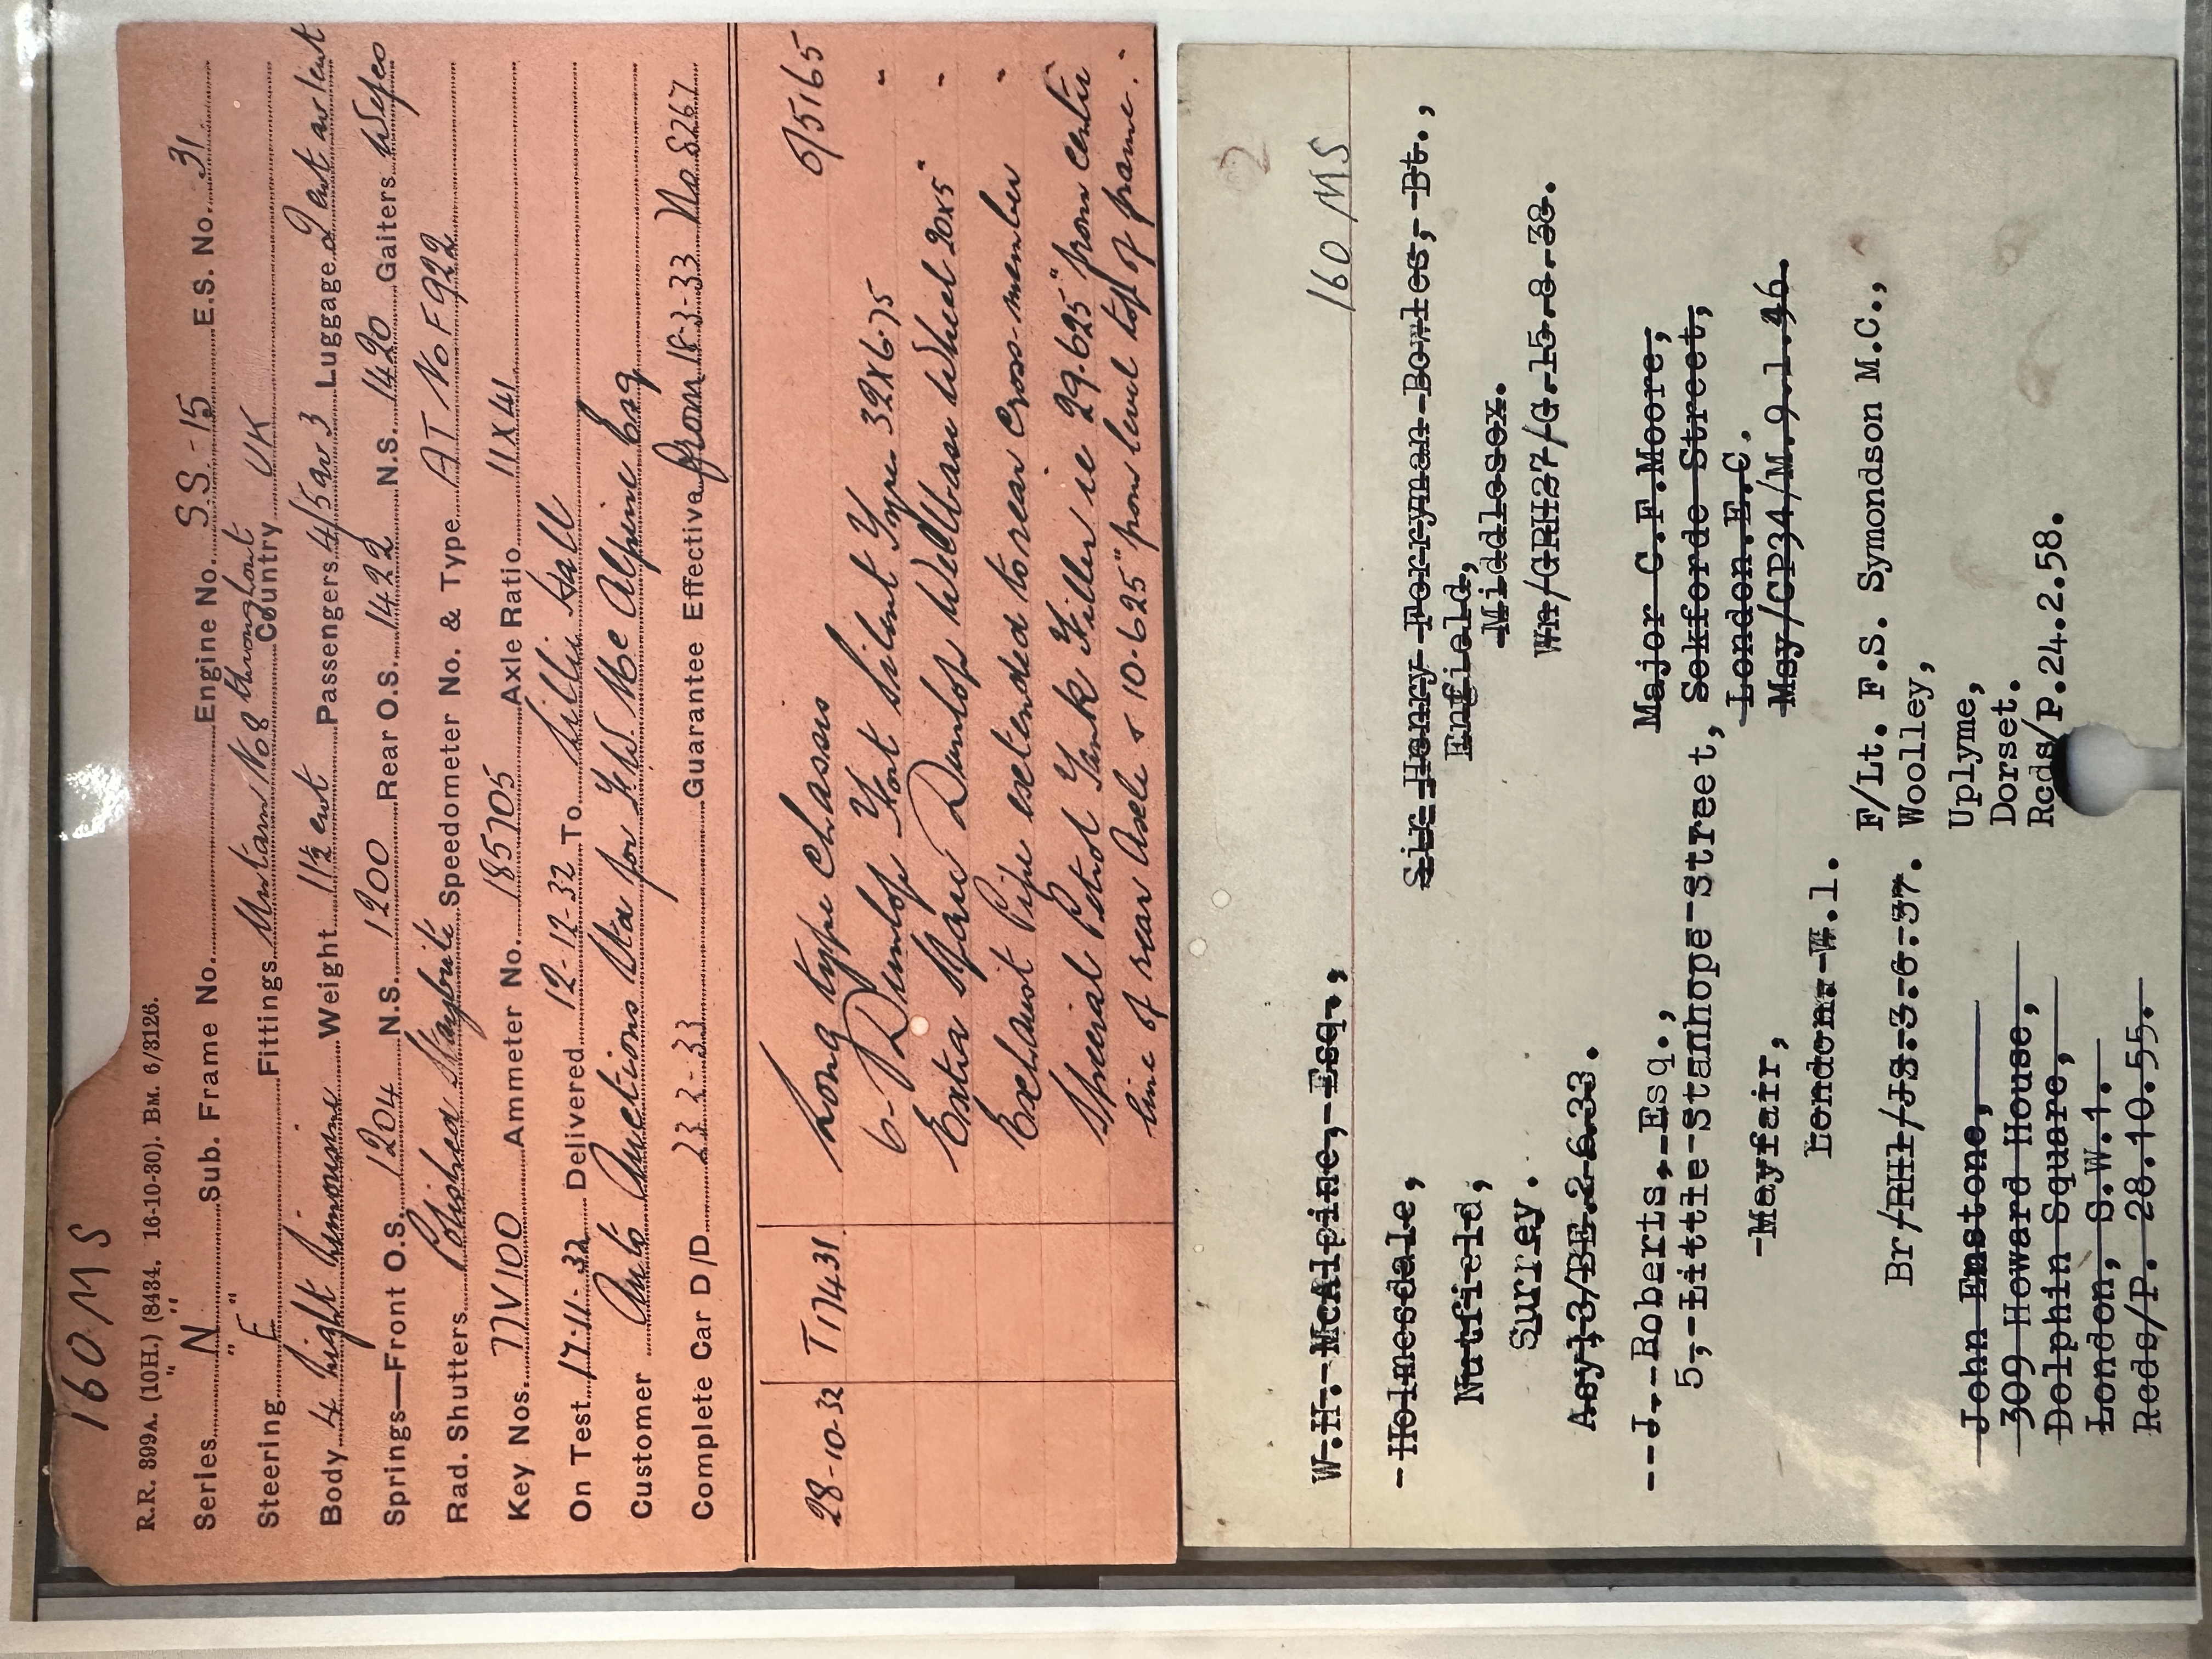 160 MS
R.R. 399A. (10H.) (8434. 16-10-30). BM. 6/3126.
Series "N" Sub. Frame No. Engine No. S.S.-15 E.S. No. 31
Steering "F" Fittings No 8 throughout Country UK
Body 4 light Limousine Weight 11½ cwt Passengers 4/5 or 3 Luggage 2 cwt
Springs—Front O.S. 1204 N.S. 1200 Rear O.S. 1422 N.S. 1420 Gaiters Wefco
Rad. Shutters Polished Staybrite Speedometer No. & Type AT No F922
Key Nos. 77V100 Ammeter No. 185705 Axle Ratio 11x41
On Test 17-11-32 Delivered 12-12-32 To Lillie Hall
Customer Auto Auctions Ltd for W. McAlpine Esq
Complete Car D/D 23-2-33 Guarantee Effective from 18-3-33 No 8267
28-10-32 T17431 Long type Chassis 6/5165
6- Dunlop Fort Silent Type 32x6.75 "
Extra Spare Dunlop Wellbase Wheel 20x5" "
Exhaust Pipe extended to rear cross-member "
Special Petrol Tank Filler ie 29.625" from centre
line of rear Axle & 10.625" from level top of frame. "
2
160 MS
W.H. McAlpine, Esq.,
Holmesdale,
Nutfield,
Surrey.
Asy13/BE.2.6.33.
Sir Henry Ferryman Bowles, Bt.,
Enfield,
Middlesex.
Wn/GRH27/G.15.8.38.
J. Roberts, Esq.,
5, Little Stanhope Street,
Mayfair,
London. W.1.
Br/RH1/JS.3.6.37.
Major C.F.Moore,
Sekforde Street,
London.E.C.
Moy/CP34/M.9.1.46.
F/Lt. F.S. Symondson M.C.,
Woolley,
Uplyme,
Dorset.
Rcds/P.24.2.58.
John Emstone,
309 Howard House,
Dolphin Square,
London, S.W.1.
Rcds/P. 28.10.55.